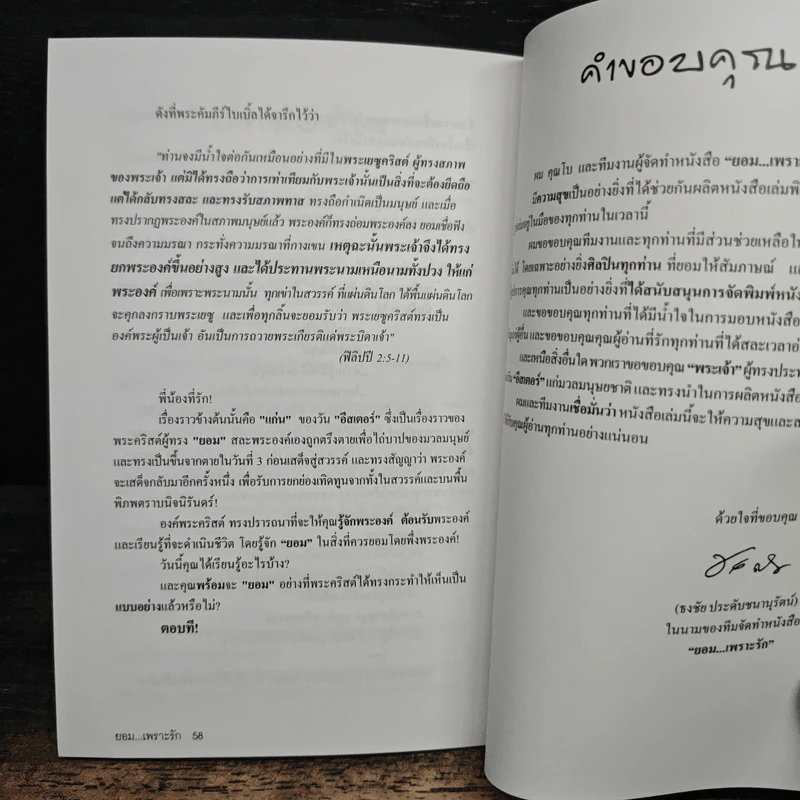 ดังที่พระคัมภีร์ไบเบิ้ลได้จารึกไว้ว่า
"ท่านจงมีน้ำใจต่อกันเหมือนอย่างที่มีในพระเยซูคริสต์ ผู้ทรงสภาพ
ของพระเจ้า แต่มิได้ทรงถือว่าการเท่าเทียมกับพระเจ้านั้นเป็นสิ่งที่จะต้องยึดถือ
แต่ได้กลับทรงสละ และทรงรับสภาพทาส ทรงถือกำเนิดเป็นมนุษย์ และเมื่อ
ทรงปรากฏพระองค์ในสภาพมนุษย์แล้ว พระองค์ก็ทรงถ่อมพระองค์ลง ยอมเชื่อฟัง
จนถึงความมรณา กระทั่งความมรณาที่กางเขน เหตุฉะนั้นพระเจ้าจึงได้ทรง
ยกพระองค์ขึ้นอย่างสูง และได้ประทานพระนามเหนือนามทั้งปวง ให้แก่
พระองค์ เพื่อเพราะพระนามนั้น ทุกเข่าในสวรรค์ ที่แผ่นดินโลก ใต้พื้นแผ่นดินโลก
จะคุกลงกราบพระเยซู และเพื่อทุกลิ้นจะยอมรับว่า พระเยซูคริสต์ทรงเป็น
องค์พระผู้เป็นเจ้า อันเป็นการถวายพระเกียรติแด่พระบิดาเจ้า"
(ฟีลิปปี 2:5-11)
พี่น้องที่รัก!
เรื่องราวข้างต้นนั้นคือ "แก่น" ของวัน "อีสเตอร์" ซึ่งเป็นเรื่องราวของ
พระคริสต์ผู้ทรง "ยอม" สละพระองค์เองถูกตรึงตายเพื่อไถ่บาปของมวลมนุษย์
และทรงเป็นขึ้นจากตายในวันที่ 3 ก่อนเสด็จสู่สวรรค์ และทรงสัญญาว่า พระองค์
จะเสด็จกลับมาอีกครั้งหนึ่ง เพื่อรับการยกย่องเทิดทูนจากทั้งในสวรรค์และบนพื้น
พิภพตราบนิจนิรันดร์!
องค์พระคริสต์ ทรงปรารถนาที่จะให้คุณรู้จักพระองค์ ต้อนรับพระองค์
และเรียนรู้ที่จะดำเนินชีวิต โดยรู้จัก "ยอม" ในสิ่งที่ควรยอมโดยพึ่งพระองค์!
วันนี้คุณได้เรียนรู้อะไรบ้าง?
และคุณพร้อมจะ "ยอม" อย่างที่พระคริสต์ได้ทรงกระทำให้เห็นเป็น
แบบอย่างแล้วหรือไม่?
ตอบที!
ยอม...เพราะรัก 58
คำขอบคุณ
ผม คุณโบ และทีมงานผู้จัดทำหนังสือ "ยอม...เพรา
มีความสุขเป็นอย่างยิ่งที่ได้ช่วยกันผลิตหนังสือเล่มพิ
อยู่ในมือของทุกท่านในเวลานี้
ผมขอขอบคุณทีมงานและทุกท่านที่มีส่วนช่วยเหลือให
ได้ โดยเฉพาะอย่างยิ่งศิลปินทุกท่าน ที่ยอมให้สัมภาษณ์ แ
คุณทุกท่านเป็นอย่างยิ่งที่ได้สนับสนุนการจัดพิมพ์หนัง
และขอขอบคุณทุกท่านที่ได้มีน้ำใจในการมอบหนังสือ
ผู้อื่น และขอขอบคุณคุณผู้อ่านที่รักทุกท่านที่ได้สละเวลาอ่า
และเหนือสิ่งอื่นใด พวกเราขอขอบคุณ "พระเจ้า" ผู้ทรงประท
"อีสเตอร์" แก่มวลมนุษยชาติ และทรงนำในการผลิตหนังสือ
ผมและทีมงานเชื่อมั่นว่า หนังสือเล่มนี้จะให้ความสุขและส
คุณผู้อ่านทุกท่านอย่างแน่นอน
ด้วยใจที่ขอบคุณ
(ธงชัย ประดับชนานุรัตน์)
ในนามของทีมจัดทำหนังสือ
"ยอม...เพราะรัก"